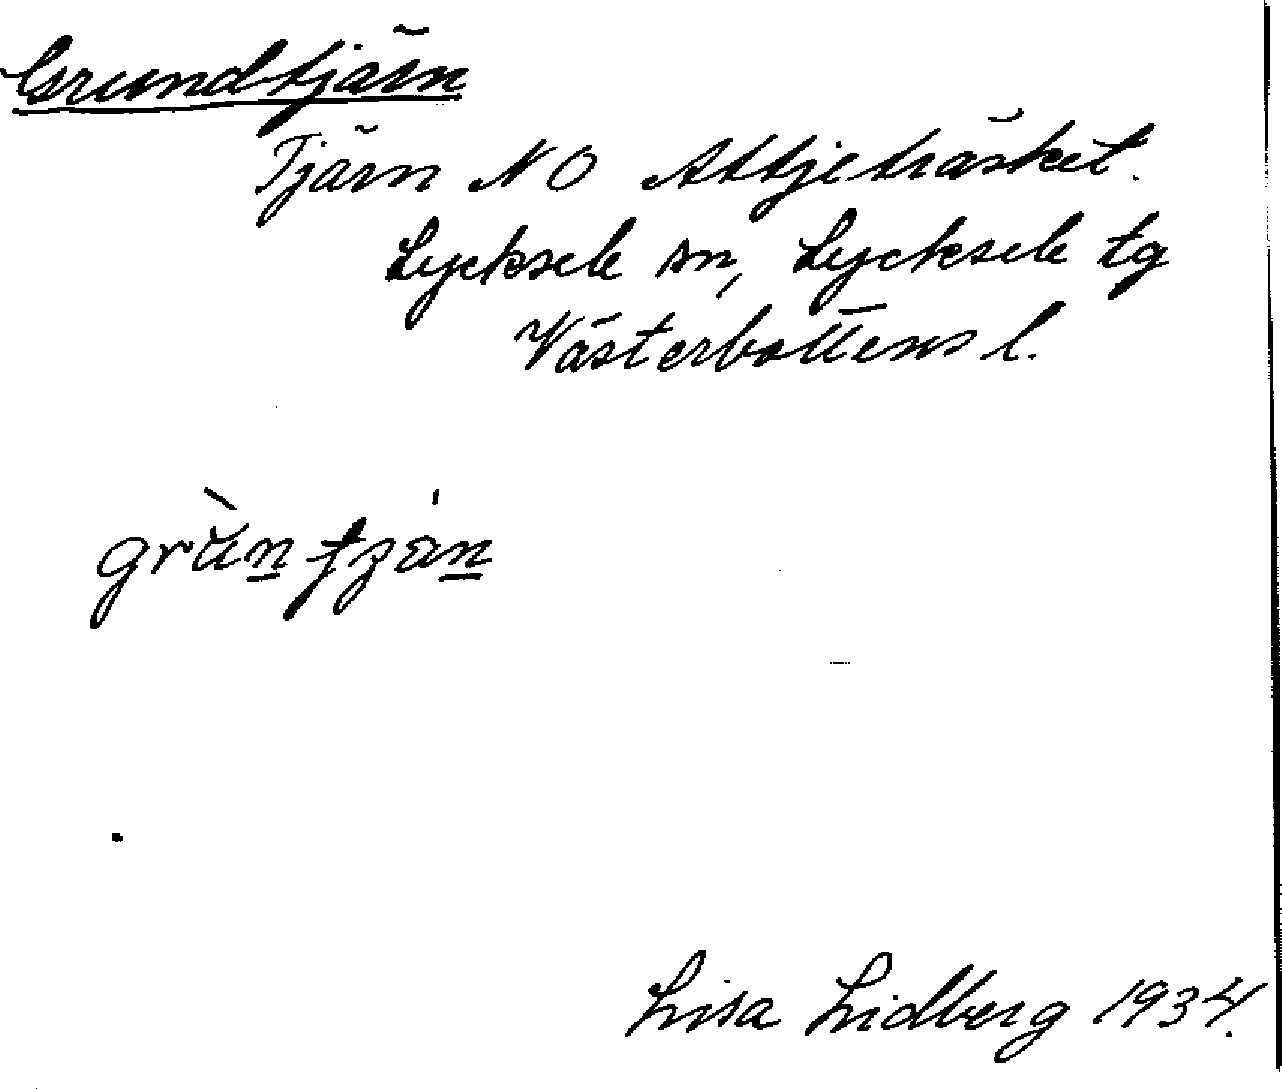 Grundtjärn
Tjärn NO Attjeträsket.
Lycksele sn, Lycksele tg
Västerbottens l.
Lisa Lidberg 1934.